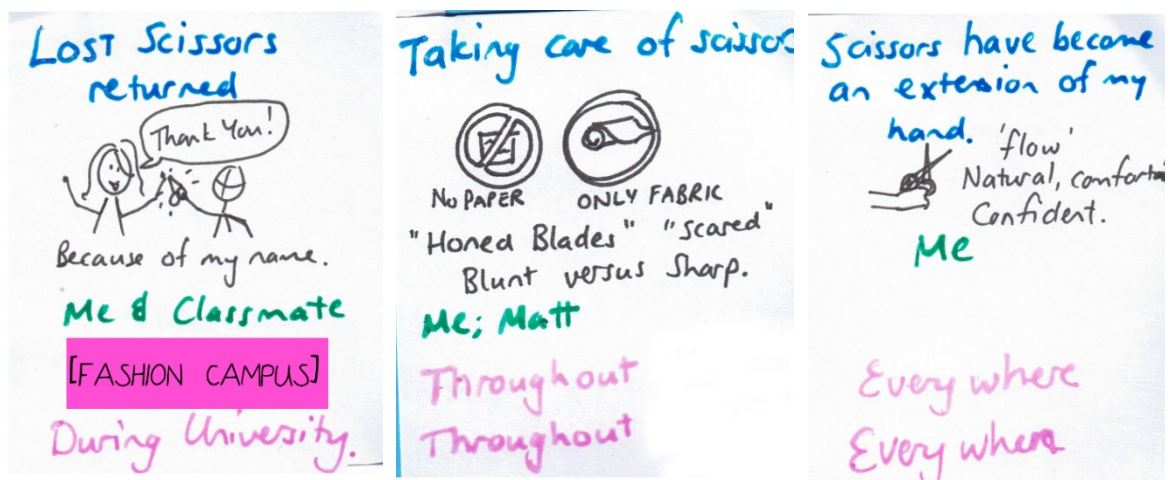 Lost Scissors
returned
Thank You!
Because of my name.
Me & Classmate
[FASHION CAMPUS]
During University.
Taking care of scissor
No PAPER
ONLY FABRIC
"Honed Blades" "scared"
Blunt versus Sharp.
Me; Matt
Throughout
Throughout
Scissors have become
an extension of my
hand.
'flow'
Natural,
Confident.
Me
Every where
Every where